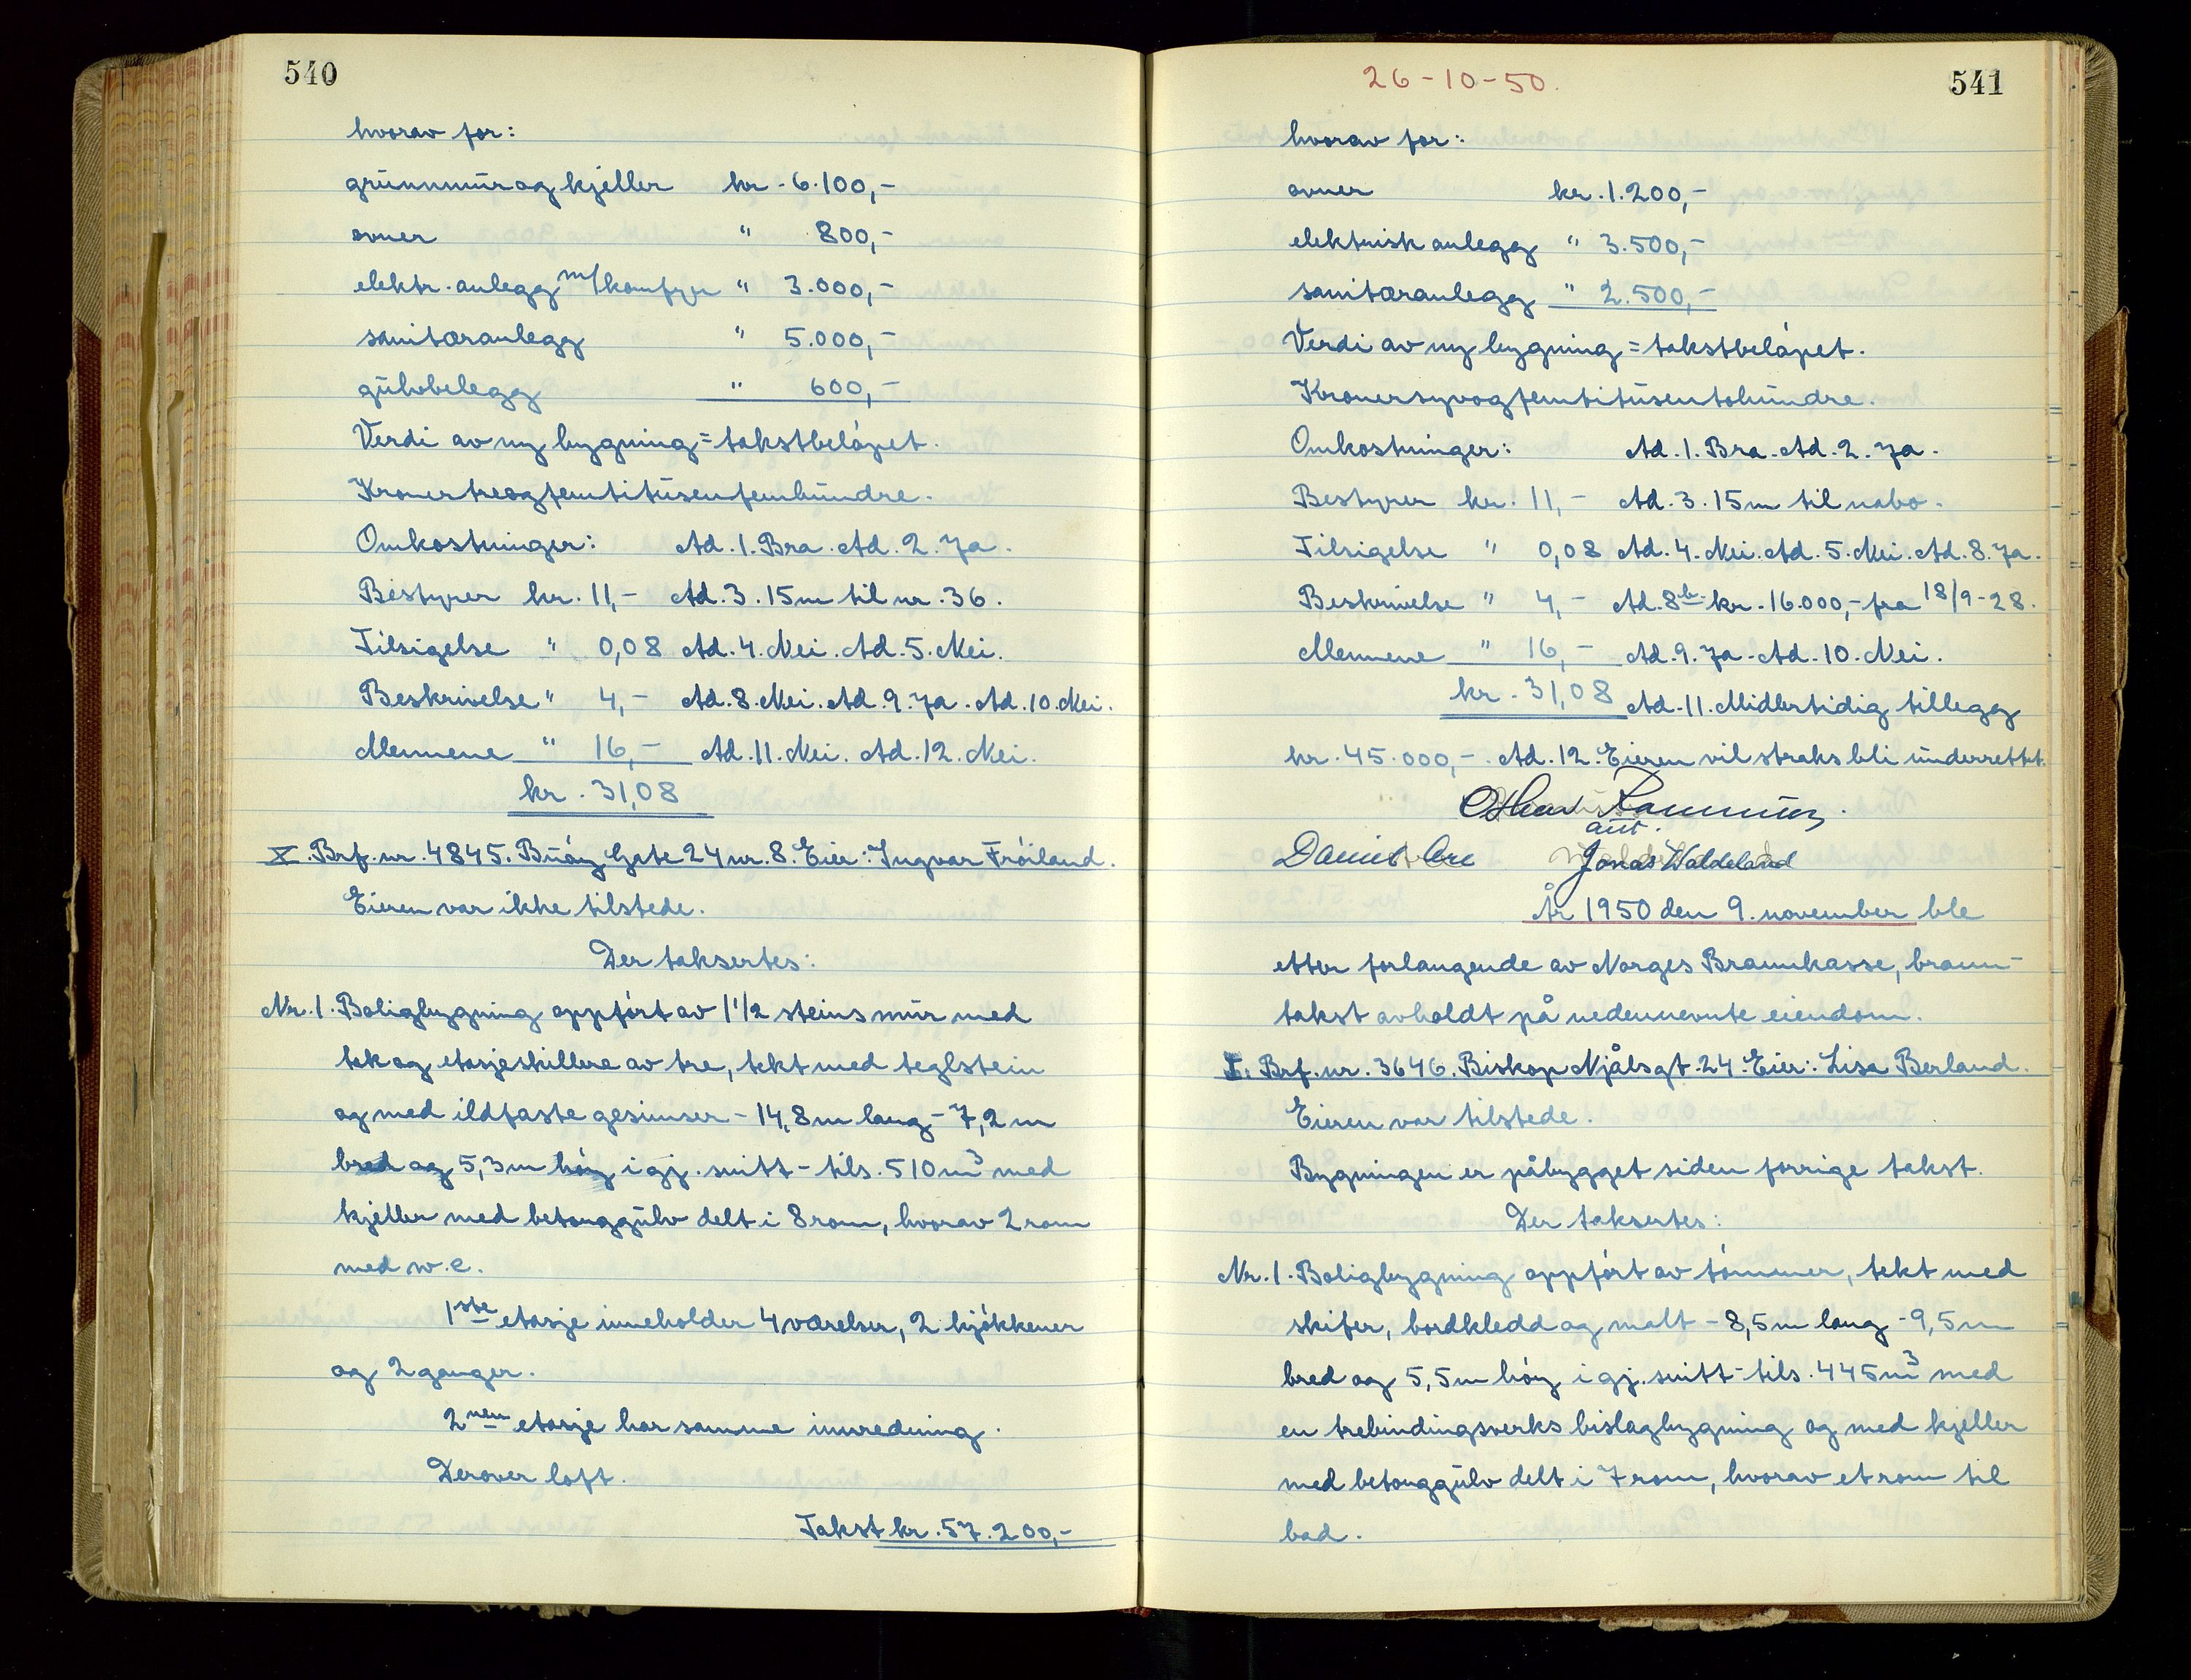 540
hvorav for:
grunnmur og kjeller kr. 6.100,-
ovner " 800,-
elektr. anlegg m/komfyr " 3.000,-
sanitæranlegg " 5.000,-
gulvbelegg " 600,-
Verdi av ny bygning = takstbeløpet.
Kronertreogfemtitusenfemhundre.
Omkostninger: Ad. 1. Bra. Ad. 2. Ja.
Bestyrer kr. 11,- Ad. 3. 15m til nr. 36.
Tilsigelse " 0,08 Ad. 4. Nei. Ad. 5. Nei.
Beskrivelse " 4,- Ad. 8. Nei. Ad. 9. Ja. Ad. 10. Nei.
Mennene " 16,- Ad. 11. Nei. Ad. 12. Nei.
kr. 31,08
X. Brf. nr. 4845. Buøy Gate 24 nr. 8. Eier: Ingvar Fröiland.
Eieren var ikke tilstede.
Der taksertes:
Nr. 1. Boligbygning oppført av 1 1/2 steins mur med
tak og etasjeskillere av tre, tekt med teglstein
og med ildfaste gesimser - 14,8m lang - 7,2m
bred og 5,3m høy i gj. snitt - tils. 510m³ med
kjeller med betonggulv delt i 8 rom, hvorav 2 rom
med w.c.
1ste etasje inneholder 4 værelser, 2 kjøkkener
og 2 ganger.
2nen etasje har samme innredning.
Derover loft.
Takst kr. 57.200,-
26-10-50.
541
hvorav for:
ovner kr. 1.200,-
elektrisk anlegg " 3.500,-
sanitæranlegg " 2.500,-
Verdi av ny bygning = takstbeløpet.
Kronersyvogfemtitusentohundre.
Omkostninger: Ad. 1. Bra. Ad. 2. Ja.
Bestyrer kr. 11,- Ad. 3. 15m til nabo.
Tilsigelse " 0,08 Ad. 4. Nei. Ad. 5. Nei. Ad. 8. Ja.
Beskrivelse " 4,- Ad. 8b kr. 16.000,- fra 18/9-28.
Mennene " 16,- Ad. 9. Ja. Ad. 10. Nei.
kr. 31,08 Ad. 11. Midlertidig tillegg
kr. 45.000,-. Ad. 12. Eieren vil straks bli underrettet.
aut.
Daniel Jonas Waldeland
År 1950 den 9. november ble
etter forlangende av Norges Brannkasse, brann-
takst avholdt på nedennevnte eiendom.
I. Brf. nr. 3646. Biskop Njålsgt. 24. Eier: Lisa Berland.
Eieren var tilstede.
Bygningen er påbygget siden forrige takst.
Der taksertes:
Nr. 1. Boligbygning oppført av tømmer, tekt med
skifer, bordkledd og malt - 8,5m lang - 9,5m
bred og 5,5m høy i gj. snitt - tils. 445m³ med
en trebindingsverks bislagbygning og med kjeller
med betonggulv delt i 7 rom, hvorav et rom til
bad.